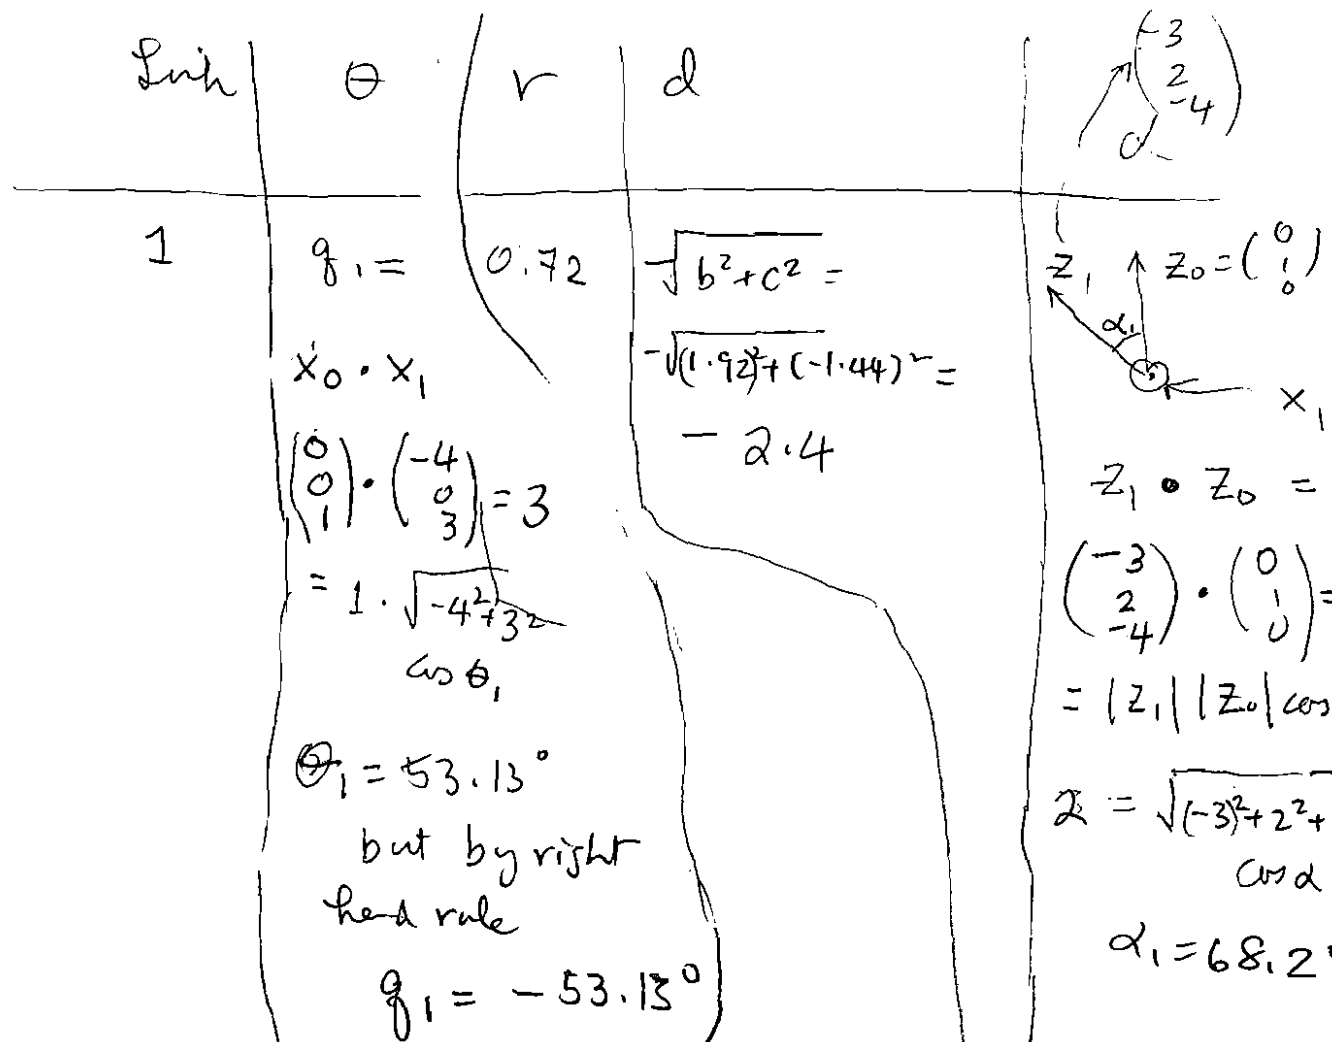 Link θ r d (-3 2 -4)
0
1
q₁ =
x₀ • x₁
(0 0 1) • (-4 0 3) = 3
= 1 · √-4²+3²
cos θ₁
θ₁ = 53.13°
but by right
hand rule
q₁ = -53.13°
0.72
-√b²+c² =
-√(1.92)²+(-1.44)² =
- 2.4
z₁ z₀ = (0 1 0)
α₁
x₁
z₁ • z₀ =
(-3 2 -4) • (0 1 0) =
= |z₁||z₀|cos
2 = √(-3)²+2²+
cos α
α₁ = 68.2°